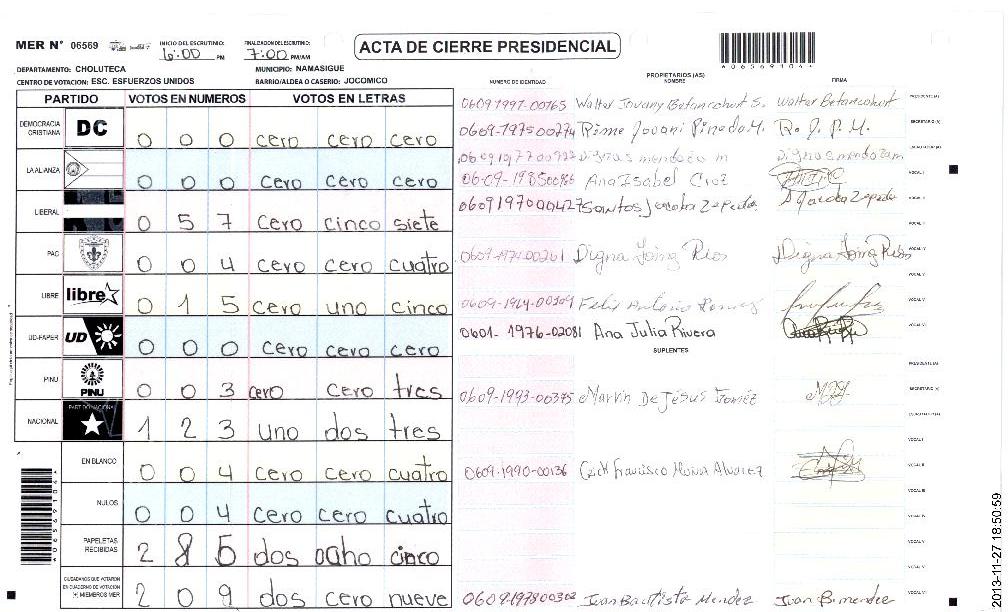 MER N° 06569 INICIO DEL ESCRUTINIO: 6:00 PM FINALIZACION DEL ESCRUTINIO: 7:00 PM/AM ACTA DE CIERRE PRESIDENCIAL A06569104
DEPARTAMENTO: CHOLUTECA MUNICIPIO: NAMASIGUE
CENTRO DE VOTACION: ESC. ESFUERZOS UNIDOS BARRIO/ALDEA O CASERIO: JOCOMICO
PARTIDO VOTOS EN NUMEROS VOTOS EN LETRAS
DEMOCRACIA CRISTIANA DC 0 0 0 cero cero cero
LA ALIANZA 0 0 0 cero cero cero
LIBERAL 0 5 7 cero cinco siete
PAC 0 0 4 cero cero cuatro
LIBRE libre 0 1 5 cero uno cinco
UD-FAPER UD 0 0 0 cero cero cero
PINU PINU 0 0 3 cero cero tres
NACIONAL PARTIDO NACIONAL 1 2 3 uno dos tres
EN BLANCO 0 0 4 cero cero cuatro
NULOS 0 0 4 cero cero cuatro
PAPELETAS RECIBIDAS 2 8 5 dos ocho cinco
CIUDADANOS QUE VOTARON EN CUADERNO DE VOTACION (+) MIEMBROS MER 2 0 9 dos cero nueve
A06569104
NUMERO DE IDENTIDAD PROPIETARIOS (AS) NOMBRE FIRMA
0609 1997-00165 Walter Jovany Betancohurt S. Walter Betancohurt PRESIDENTE(A)
0609-1975 00274 Jovani Pineda M. R. J. P. M. SECRETARIO(A)
Dignas mendoza m Dignas mendoza m
Ana Isabel Cruz VOCAL I
0609197000427 Santos Jacoba Zepeda VOCAL II
Digna Rios Digna Rios VOCAL IV
VOCAL V
Felix Antonio VOCAL VI
0601-1976-02081 Ana Julia Rivera
SUPLENTES
PRESIDENTE(A)
0609-1993-00375 Marvin De Jesus SECRETARIO(A)
VOCAL I
0609-1990-00136 Francisco Alvarez VOCAL II
VOCAL III
VOCAL V
0609197800302 Juan Bautista Mendez Juan B. mendez
2013-11-27 18:50:59